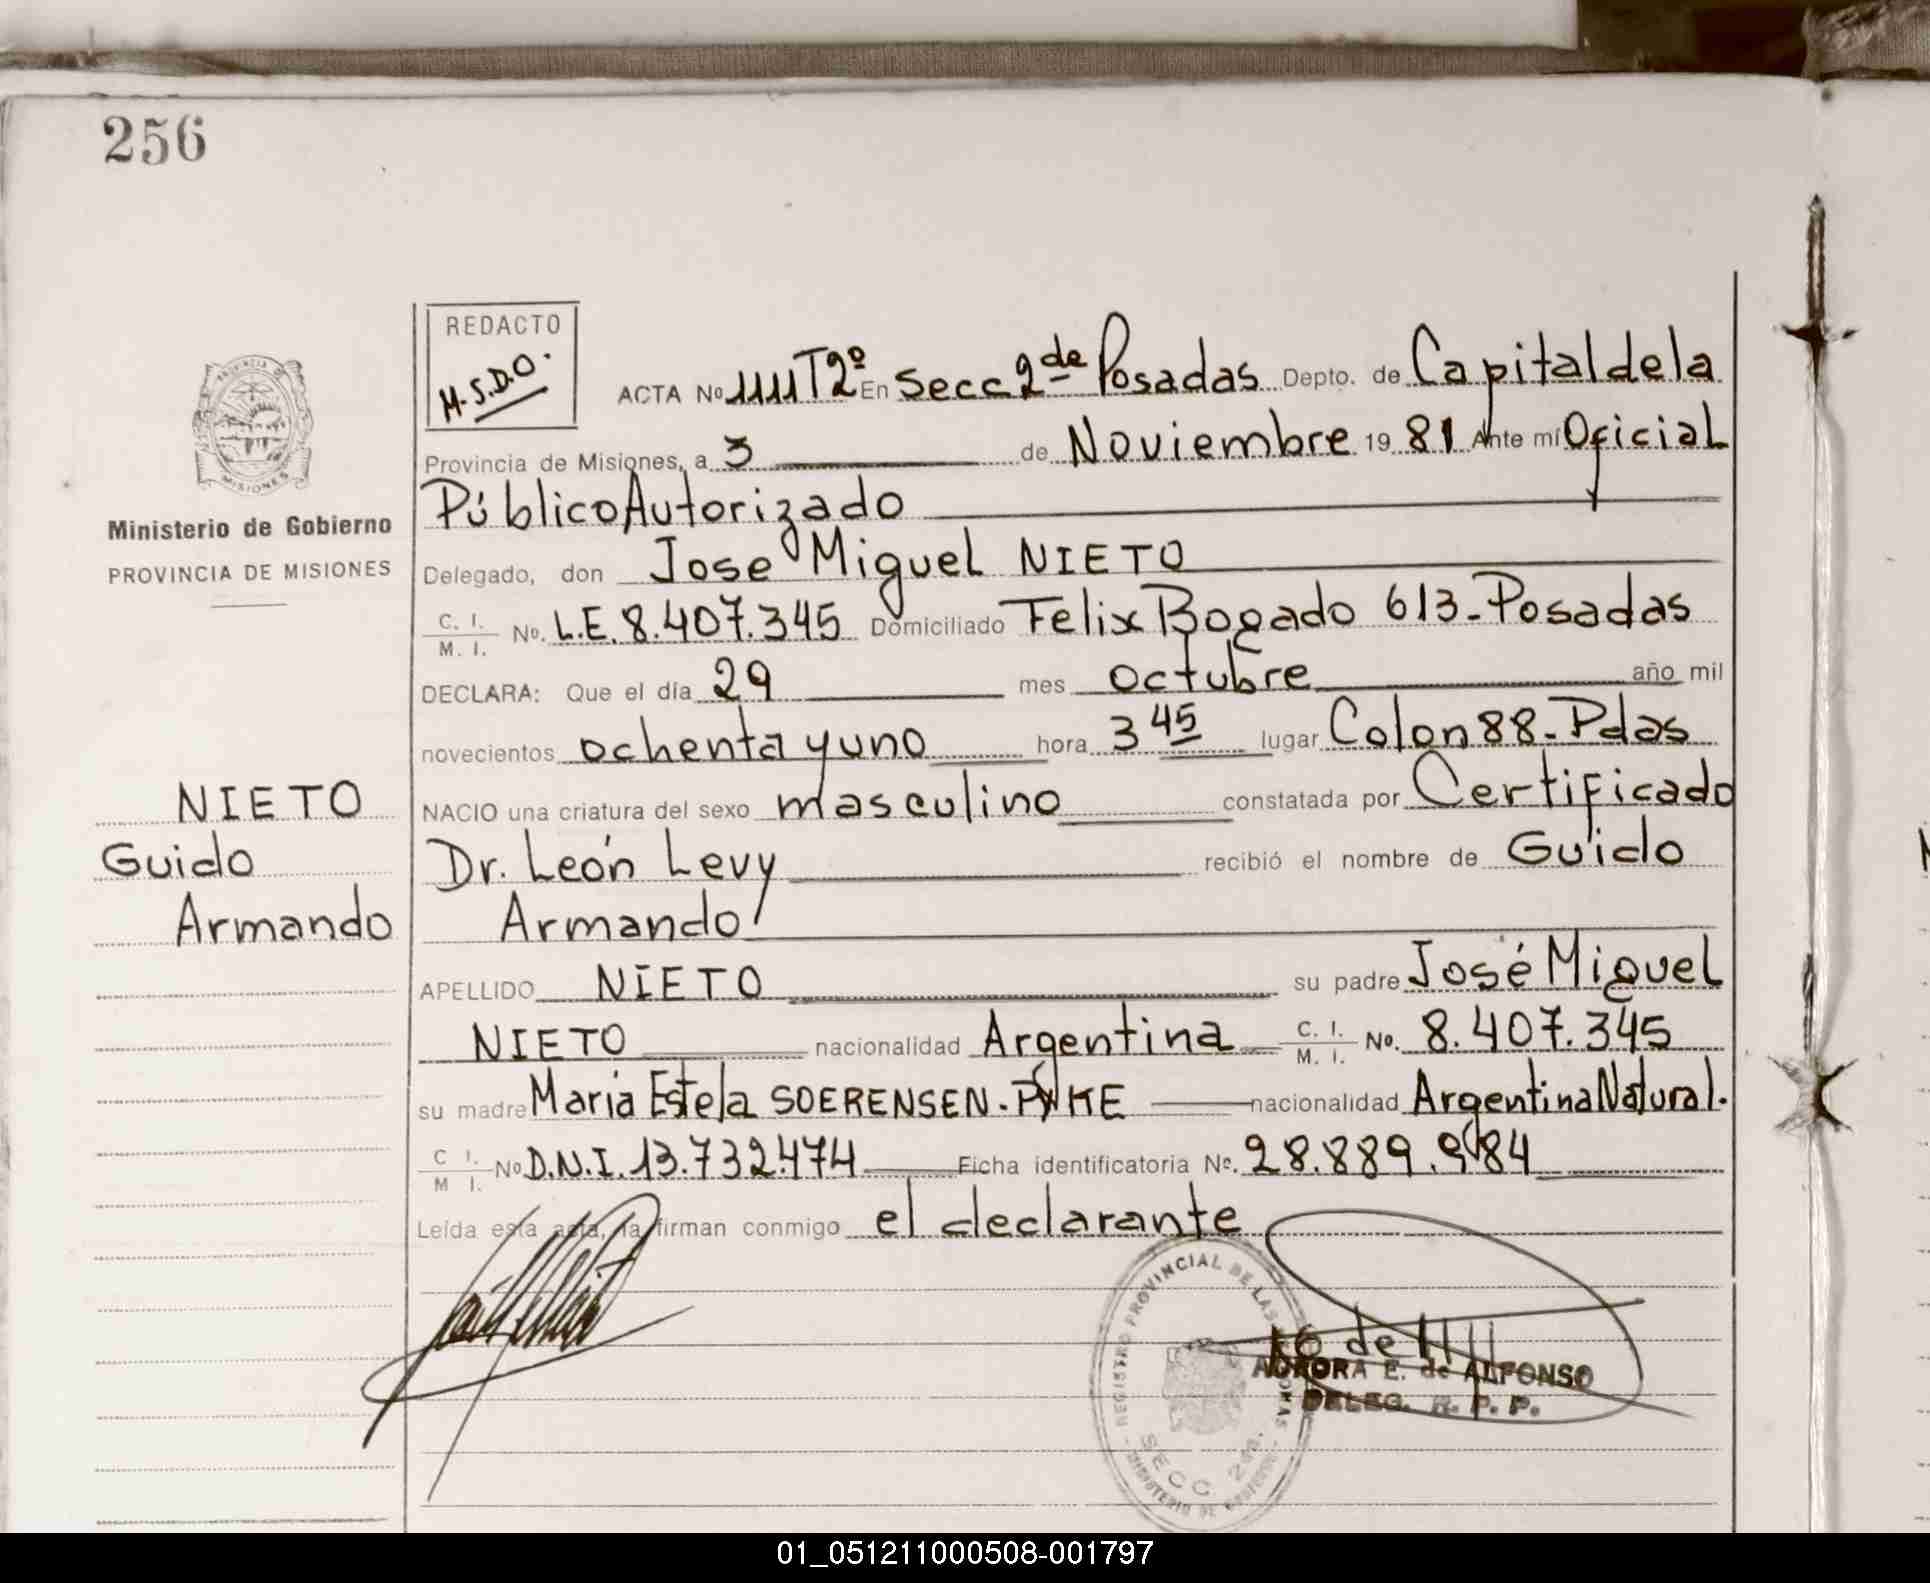 256
REDACTO
M.S.D.O.
ACTA No 1111 T2º En Secc 2de Posadas Depto. de Capital de la
Provincia de Misiones, a 3 de Noviembre 19 81 Ante mí Oficial
Público Autorizado
Ministerio de Gobierno
PROVINCIA DE MISIONES
MISIONES
Delegado, don Jose Miguel NIETO
C. I. M. I. No. L.E. 8.407.345 Domiciliado Felix Bogado 613-Posadas
DECLARA: Que el día 29 mes octubre año mil
novecientos ochenta y uno hora 3 45 lugar Colon 88-Pdas
NIETO
Guido
Armando
NACIO una criatura del sexo masculino constatada por Certificado
Dr. León Levy recibió el nombre de Guido
Armando
APELLIDO NIETO su padre José Miguel
NIETO nacionalidad Argentina C. I. M. I. No. 8.407.345
su madre Maria Estela SOERENSEN-KE nacionalidad Argentina Natural.
C I. M I. No D.N.I. 13.732.474 Ficha identificatoria No. 28.889.984
Leída esta acta, la firman conmigo el declarante
REGISTRO PROVINCIAL DE LAS PERSONAS
SECC. 2da.
MINISTERIO DE GOBIERNO
AURORA E. de ALFONSO
DELEG. R. P. P.
01_051211000508-001797